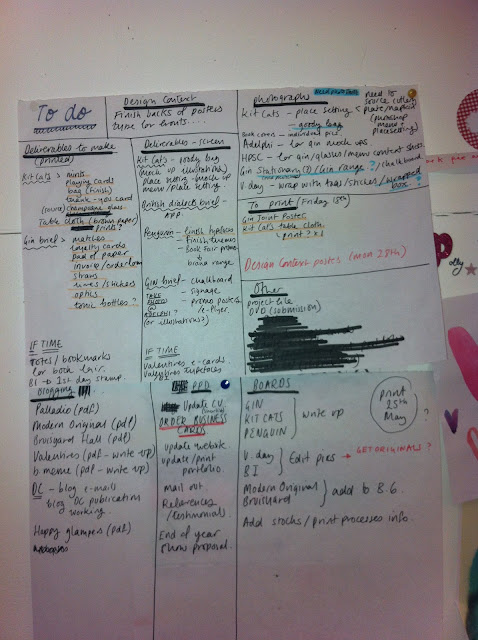 To do
Design Context
Finish backs of posters
type for fronts....
photographs
need to
source cutlery
plate/napkin
(photoshop
menu +
placesetting)
Kit Cats - place setting
- goody bag
Book covers - individual pics
Adelphi - for gin mock ups.
HPSC - for gin/glasses/menu context shots
Gin Stationary (?)/Gin range ?/chalkboard
V day - wrap with tags/stickers/wrapped
box ?
To print (Friday 18th)
Gin Joint Poster
Kit Cats table cloth.
print? x2
Design Context postes (mon 28th)
Other
project file
DVD (submission)
Deliverables to make
(printed)
Kit Cats > mints
playing cards
bag (finish)
thank-you card
(source) champagne glass.
Table cloth (brown paper)
Prints?
Gin brief > matches
loyalty cards
pad of paper
invoice/order form
straws
lives/stickers
optics.
tonic bottles?
IF TIME
notes/bookmarks
for both fair.
BI - D 1st day stamp.
Deliverables - screen
Kit Cats - goody bag
(mock up illustrations)
place setting - mock up
menu/place setting
British dialects brief -
APP.
Penguin - finish typeface
- finish themes
- book fair promo
to
brand range
Gin brief - chalkboard
- signage
- promo posters
/e-flyer.
TAKE
PHOTO
@
ADELPHI?
(or illustrations?)
IF TIME
Valentines e-cards.
Valentines typefaces
Blogging
Palladio (pdf)
Modern Original (pdf)
Bruisyard Hall (pdf)
Valentines (pdf - write up)
b. meme (pdf - write up)
DC - blog e-mails
blog DC publication
working.
Happy glampers (pdf)
PPD
Update CV.
ORDER BUSINESS
CARDS
update website.
update/print
portfolio.
Mail out.
References
/testimonials.
End of year
show proposal.
BOARDS
GIN
KIT CATS
PENGUIN
write up
print
25th
May
?
V. day
BI
Edit pics → GET ORIGINALS?
Modern Original
Bruisyard
add to B.6.
Add stocks/print processes info.